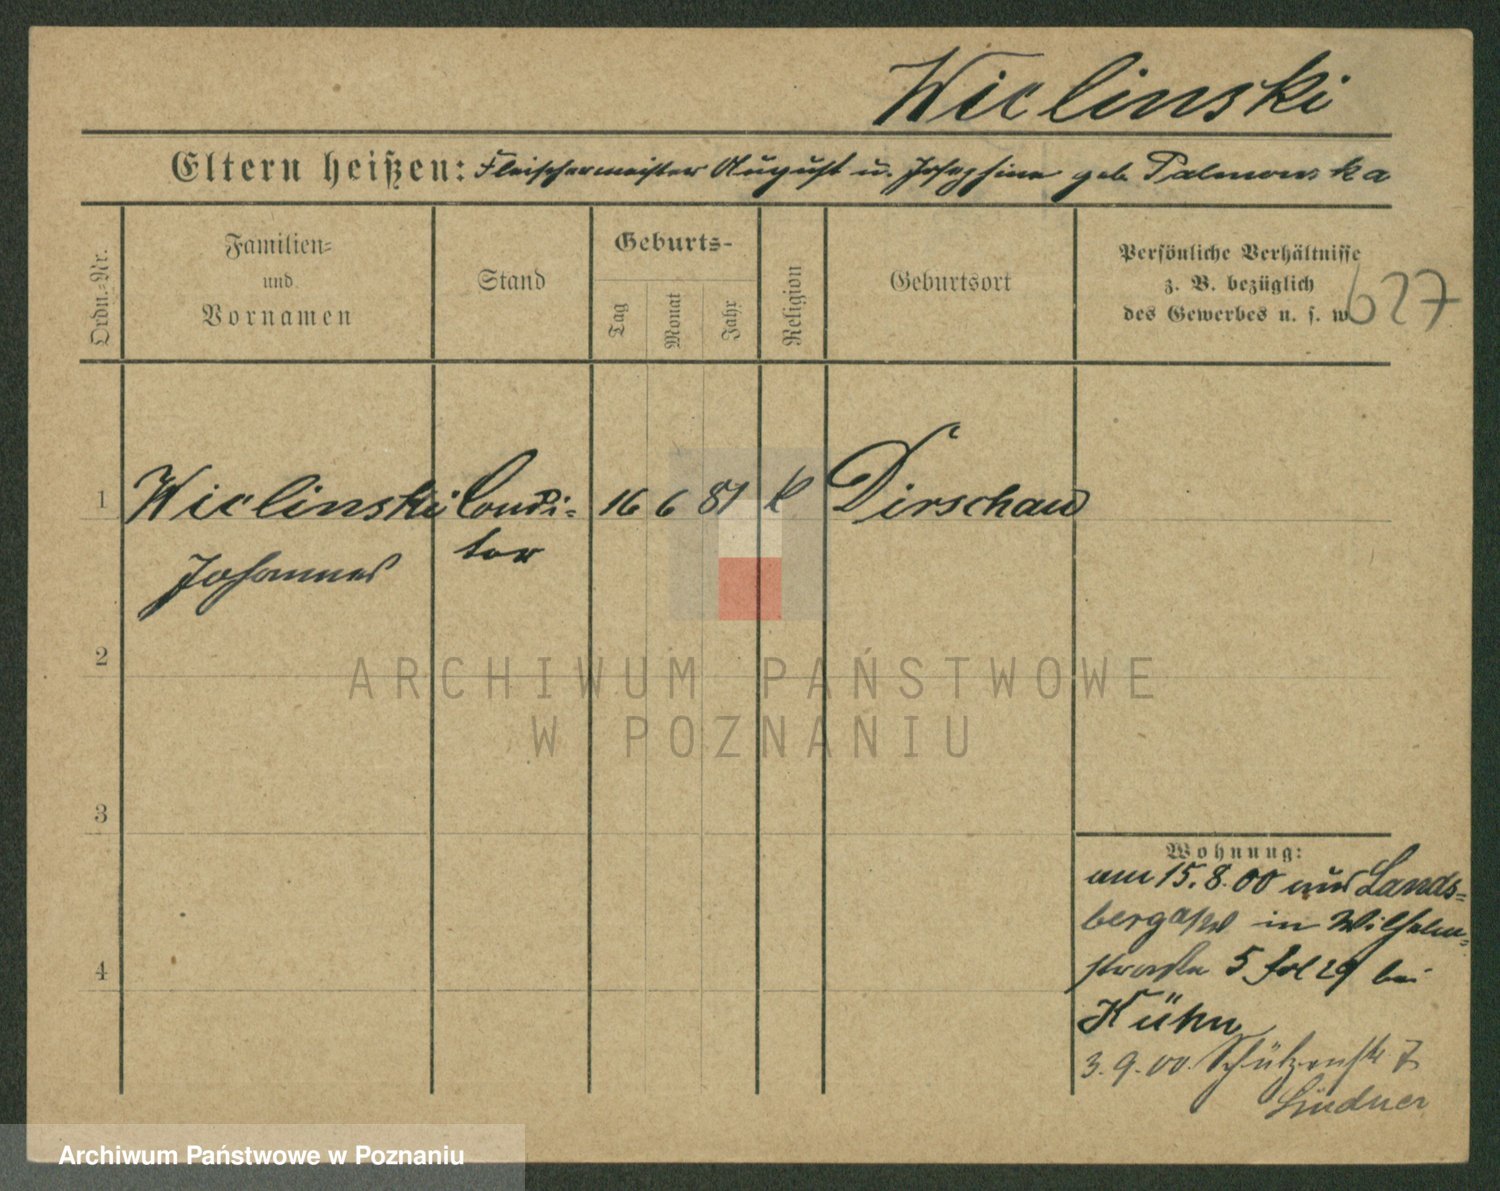 Wiclinski
Eltern heißen: Fleischermeister August u. Josephine geb. Palmowska
Ordn.-Nr.
Familien-
und
Vornamen
Stand
Geburts-
Tag
Monat
Jahr
Religion
Geburtsort
Persönliche Verhältnisse
z. B. bezüglich
des Gewerbes u. s. w.
627
1 Wiclinski Condi- 16 6 81 k Dirschau
Johannes tor
2
3
4
ARCHIWUM PAŃSTWOWE
W POZNANIU
Wohnung:
am 15.8.00 aus Lands-
berga/W in Wilhelm-
straße 5 bei
Kühn
3.9.00. Schützenstr 7
Lindner
Archiwum Państwowe w Poznaniu